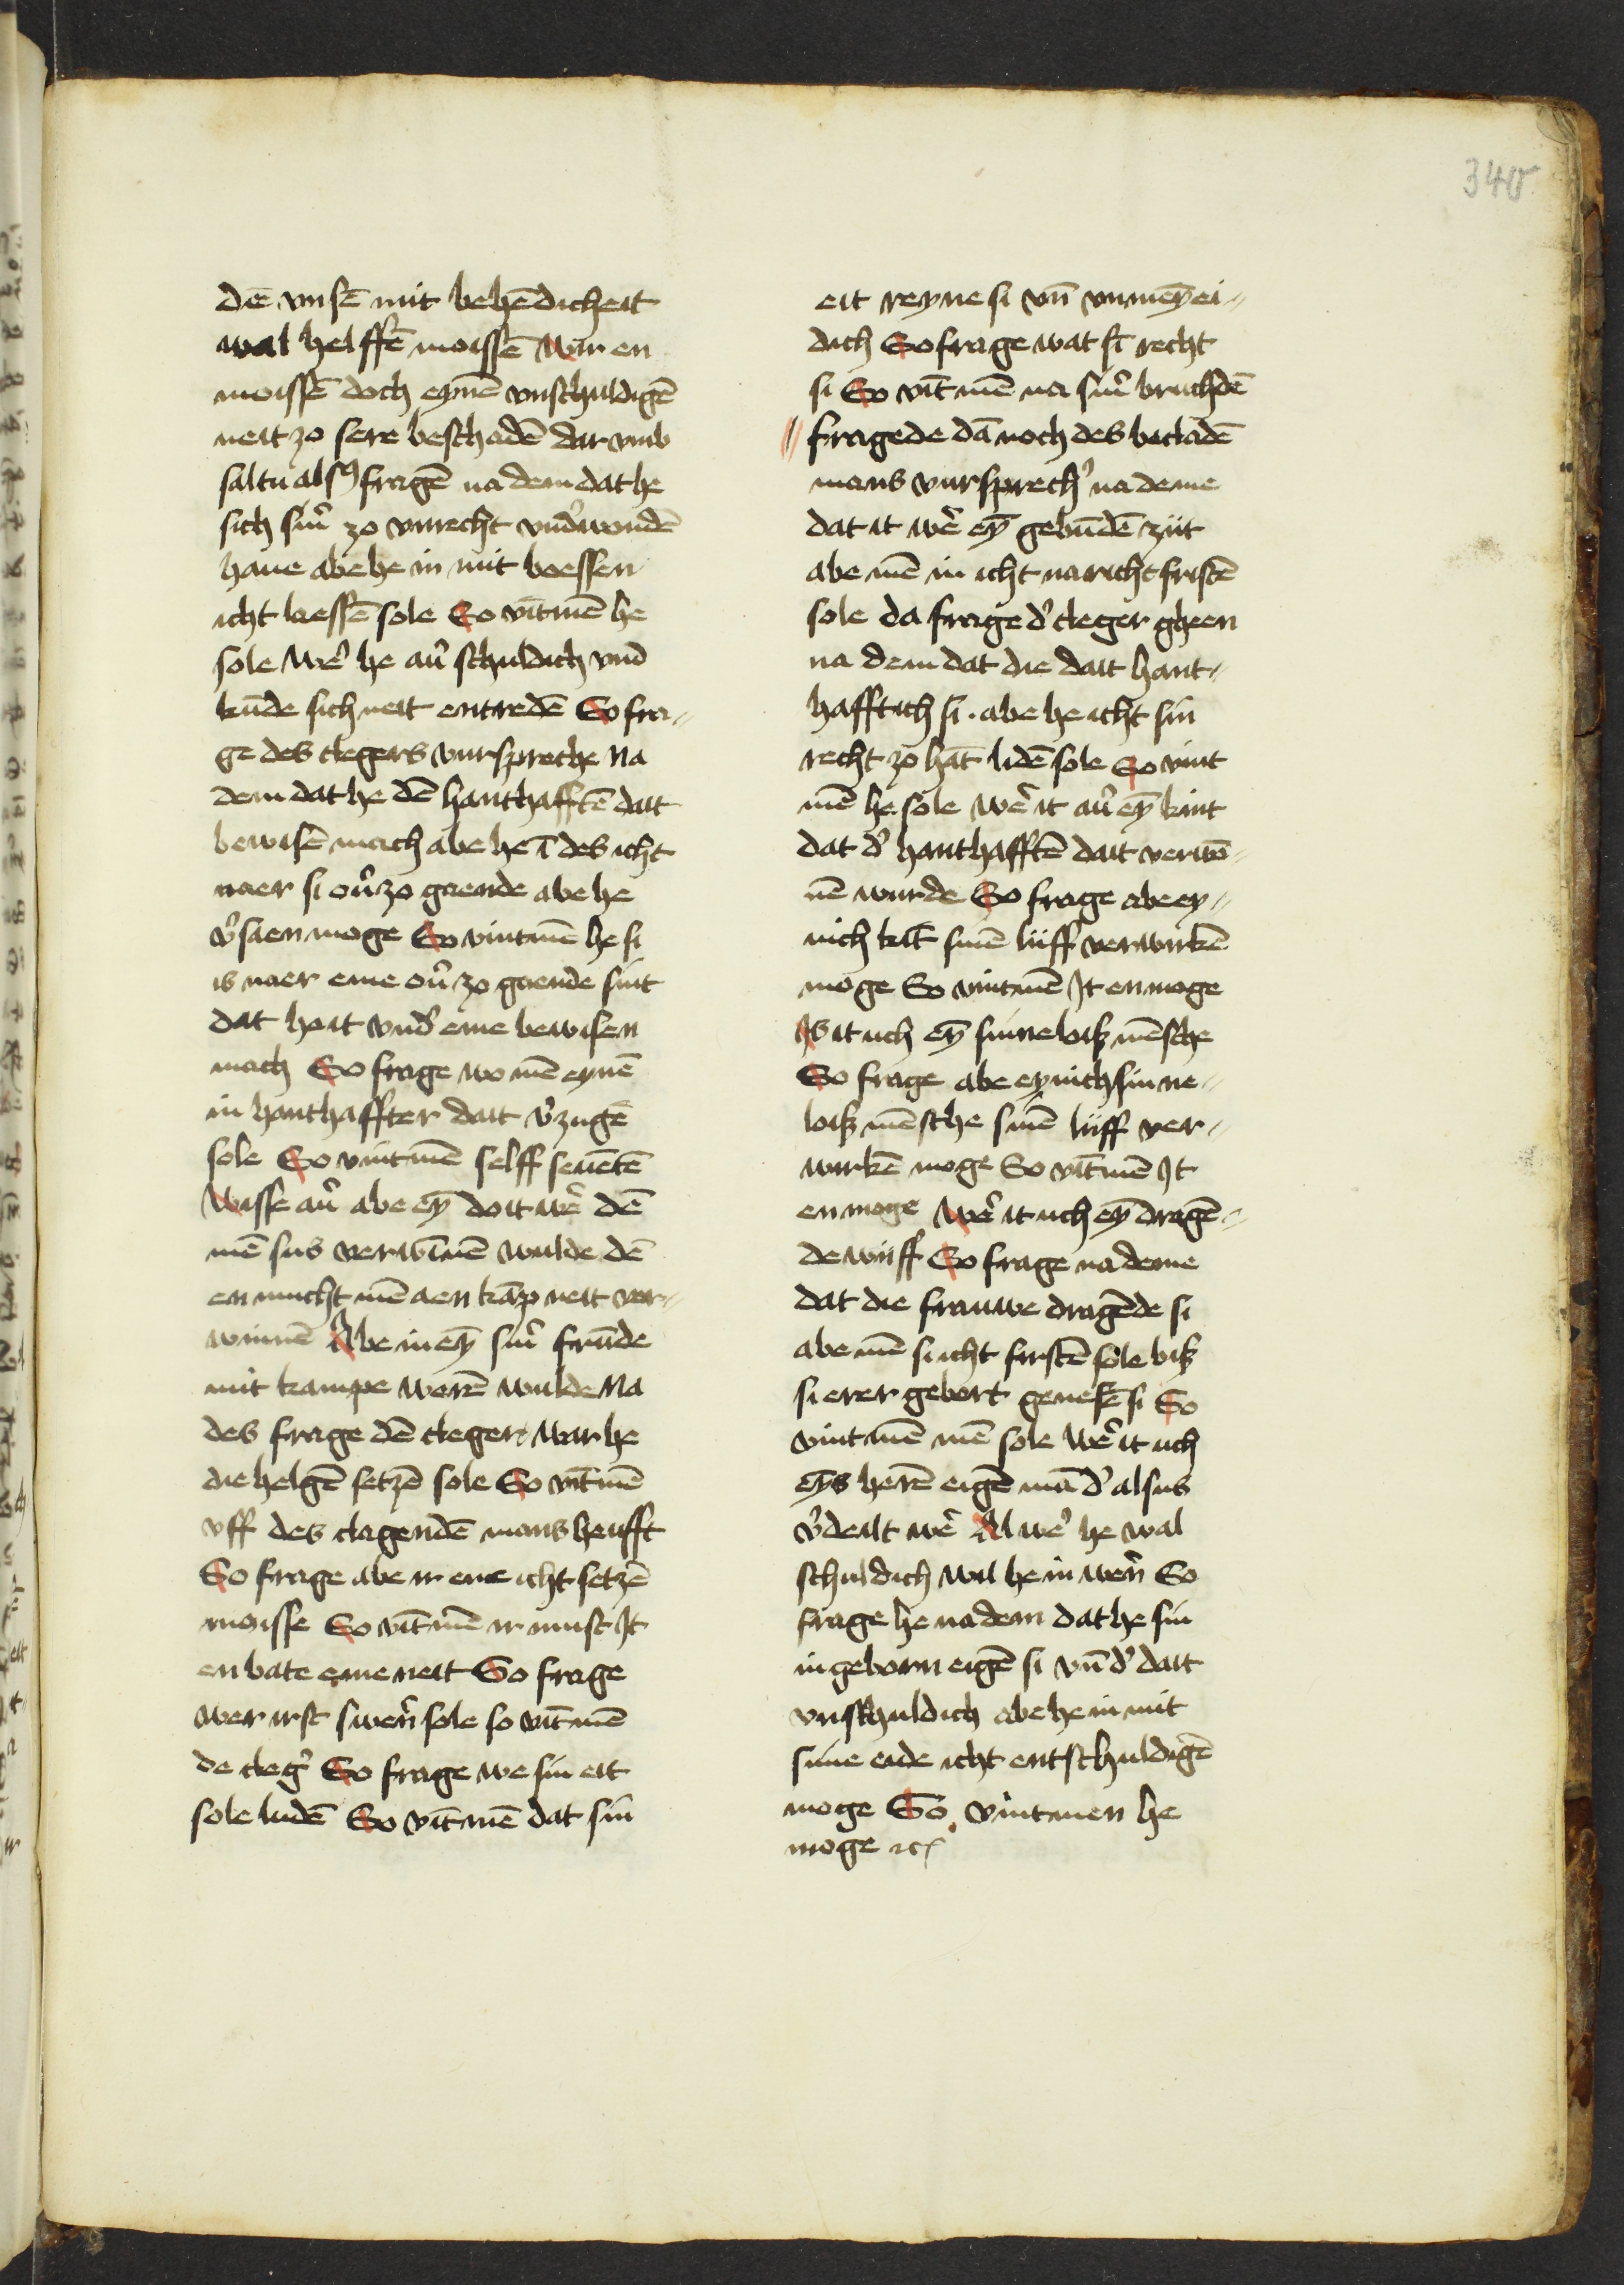 340
dē vnsē mit behēdicheit
wal helffē moissē Wir en
moissē doch eynē vnschuldigē
neit zo sere beschadē dar vmb
saltu als9 fragē na dem dat he
sich sinr̄ zo vnrecht vnd'wondē
haue abe he in mit boessen
icht liessē sole So vītmē he
sole Wer' he au' schuldich vnd
kūde sich neit entredē So fra-
ge des clegers vurspreche Na
dem dat he dē hanthafftē dait
bewisē mach abe he ī des icht
naer si ou'zo gaende abe he
v'saen moge So vintmē he si
is naer eme ou' zo gaende sint
dat he it vnd' eme bewisen
mach So frage wo mē eynē
in hanthaffter dait v'zugē
sole So vintmē selff seuētē
Wisse au' abe eȳ doit wer' dē
mē sus verwīnē wulde dē
en mucht mē aen kāp neit ver-
winnē Abe in eȳ sinr' frūde
mit kampe werē wulde Na
des frage dē cleger War he
die helgē setzē sole So vītmē
vff des clagendē mans heufft
So frage abe ir eme icht setzē
moisse So vītmē ir must It
en bate eme neit So frage
wer irst swer̄n sole so vītmē
de cleg' So frage we sin eit
sole ludē So vītmē dat sin
eit reyne si vn̄ vnmeȳei-
dich So frage wat sī recht
si So vīt mē na sinr' bruchdē
frage de dā noch des becladē
mans vursprech' na deme
dat it wer' eȳ gebūdē ziit
abe mē in icht na richt fristē
sole da frage d' cleger gheen
na dem dat die dait hant-
hafftich si. abe he icht sin
recht zo hāt lidē sole So vint
mē he sole Wer' it au' eȳ kint
dat d' hanthafftē dait verwō-
nē wurde So frage abe ey-
nich kīt sinē liiff verwirkē
moge So vintmē It en moge
Is it uch eȳ sinneloiß mēsche
So frage abe eynich sinne-
loiß mēsche sinē liiff ver-
wirkē moge So vītmē It
en moge Wer' it uch eȳ dragē-
de wiiff So frage na deme
dat die frauwe dragēde si
abe mē si icht fristē sole biß
si erer gebort genesē si So
vintmē mē sole Wer' it uch
eȳs herē eigē mā d' alsus
v'deilt wer' Al wer' he wal
schuldich wil he in wer̄n So
frage he na dem dat he sin
ingeborn eigē si vn̄ d' dait
vnschuldich abe he in mit
sime eide icht entschuldigē
moge So vintmen he
moge rc